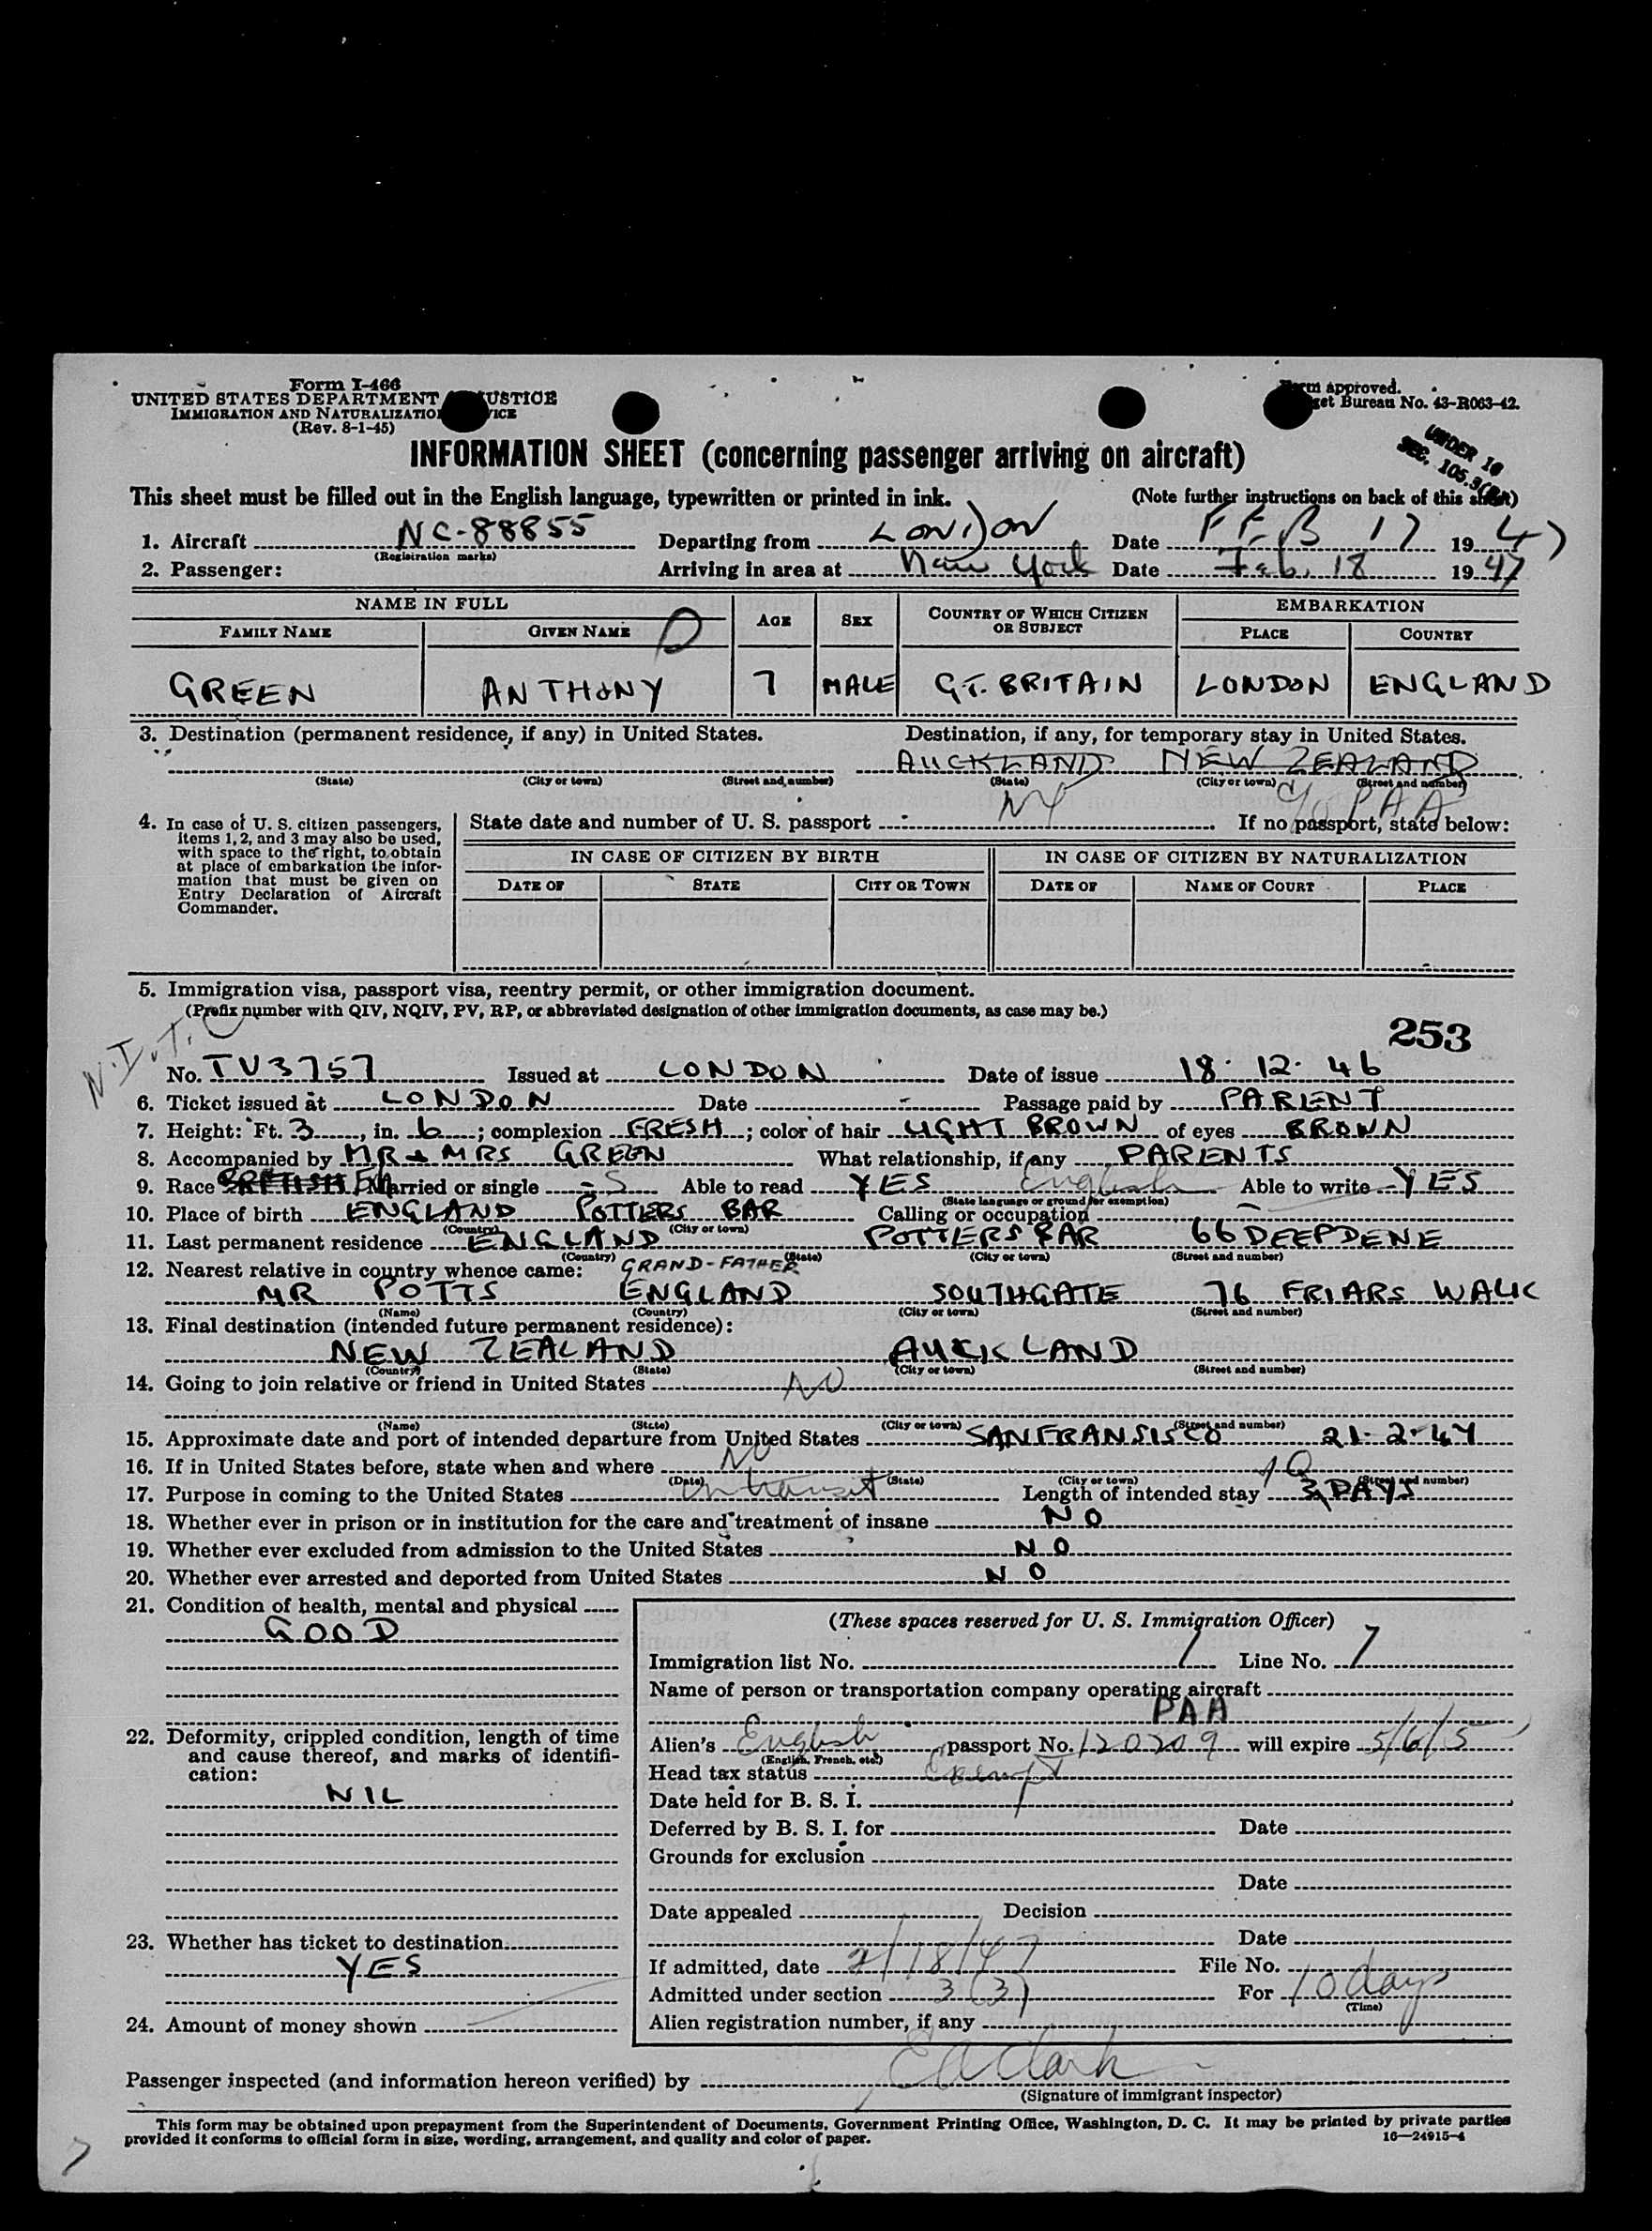 Form I-466
UNITED STATES DEPARTMENT USTICE
IMMIGRATION AND NATURALIZATIO VICE
(Rev. 8-1-45)
rm approved.
get Bureau No. 43-R063-42.
UNDER 16
SEC. 105.3
INFORMATION SHEET (concerning passenger arriving on aircraft)
This sheet must be filled out in the English language, typewritten or printed in ink. (Note further instructions on back of this sheet)
1. Aircraft NC-88855 Departing from LONDON Date FEB 17 1947
(Registration marks)
2. Passenger: Arriving in area at New York Date Feb. 18 1947
NAME IN FULL AGE SEX COUNTRY OF WHICH CITIZEN OR SUBJECT EMBARKATION
FAMILY NAME GIVEN NAME PLACE COUNTRY
GREEN ANTHONY 7 MALE GT. BRITAIN LONDON ENGLAND
3. Destination (permanent residence, if any) in United States. Destination, if any, for temporary stay in United States.
AUCKLAND NEW ZEALAND
(State) (City or town) (Street and number) (State) (City or town) (Street and number)
NY c/o PAA
4. In case of U. S. citizen passengers, items 1, 2, and 3 may also be used, with space to the right, to obtain at place of embarkation the information that must be given on Entry Declaration of Aircraft Commander.
State date and number of U. S. passport If no passport, state below:
IN CASE OF CITIZEN BY BIRTH IN CASE OF CITIZEN BY NATURALIZATION
DATE OF STATE CITY OR TOWN DATE OF NAME OF COURT PLACE
5. Immigration visa, passport visa, reentry permit, or other immigration document.
(Prefix number with QIV, NQIV, PV, RP, or abbreviated designation of other immigration documents, as case may be.)
253
N.I.T.C
No. TV3757 Issued at LONDON Date of issue 18. 12. 46
6. Ticket issued at LONDON Date - Passage paid by PARENT
7. Height: Ft. 3, in. 6; complexion FRESH; color of hair LIGHT BROWN of eyes BROWN
8. Accompanied by MR & MRS GREEN What relationship, if any PARENTS
9. Race BRITISH Married or single S Able to read YES English Able to write YES
(State language or ground for exemption)
10. Place of birth ENGLAND POTTERS BAR Calling or occupation
(Country) (City or town)
11. Last permanent residence ENGLAND POTTERS BAR 66 DEEPDENE
(Country) (State) (City or town) (Street and number)
12. Nearest relative in country whence came: GRAND-FATHER
MR POTTS ENGLAND SOUTHGATE 76 FRIARS WALK
(Name) (Country) (City or town) (Street and number)
13. Final destination (intended future permanent residence):
NEW ZEALAND AUCKLAND
(Country) (State) (City or town) (Street and number)
14. Going to join relative or friend in United States NO
(Name) (State) (City or town) (Street and number)
15. Approximate date and port of intended departure from United States SANFRANSISCO 21.2.47
16. If in United States before, state when and where NO
(Date) (State) (City or town) (Street and number)
17. Purpose in coming to the United States In transit Length of intended stay 10 DAYS
18. Whether ever in prison or in institution for the care and treatment of insane NO
19. Whether ever excluded from admission to the United States NO
20. Whether ever arrested and deported from United States NO
21. Condition of health, mental and physical
GOOD
22. Deformity, crippled condition, length of time and cause thereof, and marks of identification:
NIL
23. Whether has ticket to destination
YES
24. Amount of money shown
(These spaces reserved for U. S. Immigration Officer)
Immigration list No. 1 Line No. 7
Name of person or transportation company operating aircraft
PAA
Alien's English passport No. 120209 will expire 5/6/5
(English, French, etc.)
Head tax status Exempt
Date held for B. S. I.
Deferred by B. S. I. for Date
Grounds for exclusion
Date
Date appealed Decision
Date
If admitted, date 2/18/47 File No.
Admitted under section 3(3) For 10 days
(Time)
Alien registration number, if any
Passenger inspected (and information hereon verified) by EA Clark
(Signature of immigrant inspector)
This form may be obtained upon prepayment from the Superintendent of Documents, Government Printing Office, Washington, D. C. It may be printed by private parties
provided it conforms to official form in size, wording, arrangement, and quality and color of paper. 16—24915-4
7